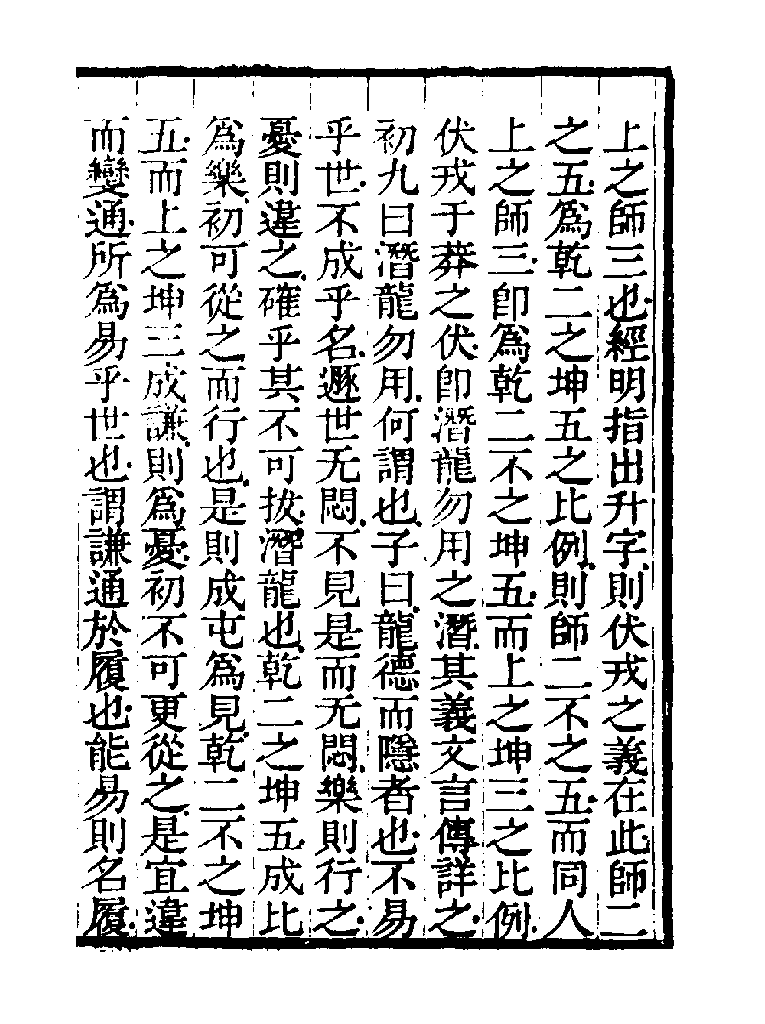 上之師三也經明指出升字則伏戎之義在此師二
之五爲乾二之坤五之比例則師二不之五而同人
上之師三卽爲乾二不之坤五而上之坤三之比例
伏戎于莽之伏卽潛龍勿用之潛其義文言傳詳之
初九曰潛龍勿用何謂也子曰龍德而隱者也不易
乎世不成乎名遯世无悶不見是而无悶樂則行之
憂則違之確乎其不可拔潛龍也乾二之坤五成比
爲樂初可從之而行也是則成屯爲見乾二不之坤
五而上之坤三成謙則爲憂初不可更從之是宜違
而變通所爲易乎世也謂謙通於履也能易則名履